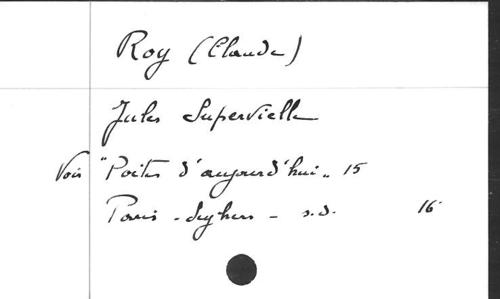 Roy (Claude)
Jules Supervielle
Voir "Poètes d'aujourd'hui" 15
Paris - Seghers - s.d. 16